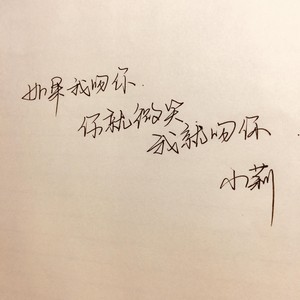 如果我吻你.
你就微笑
我就吻你.
小莉